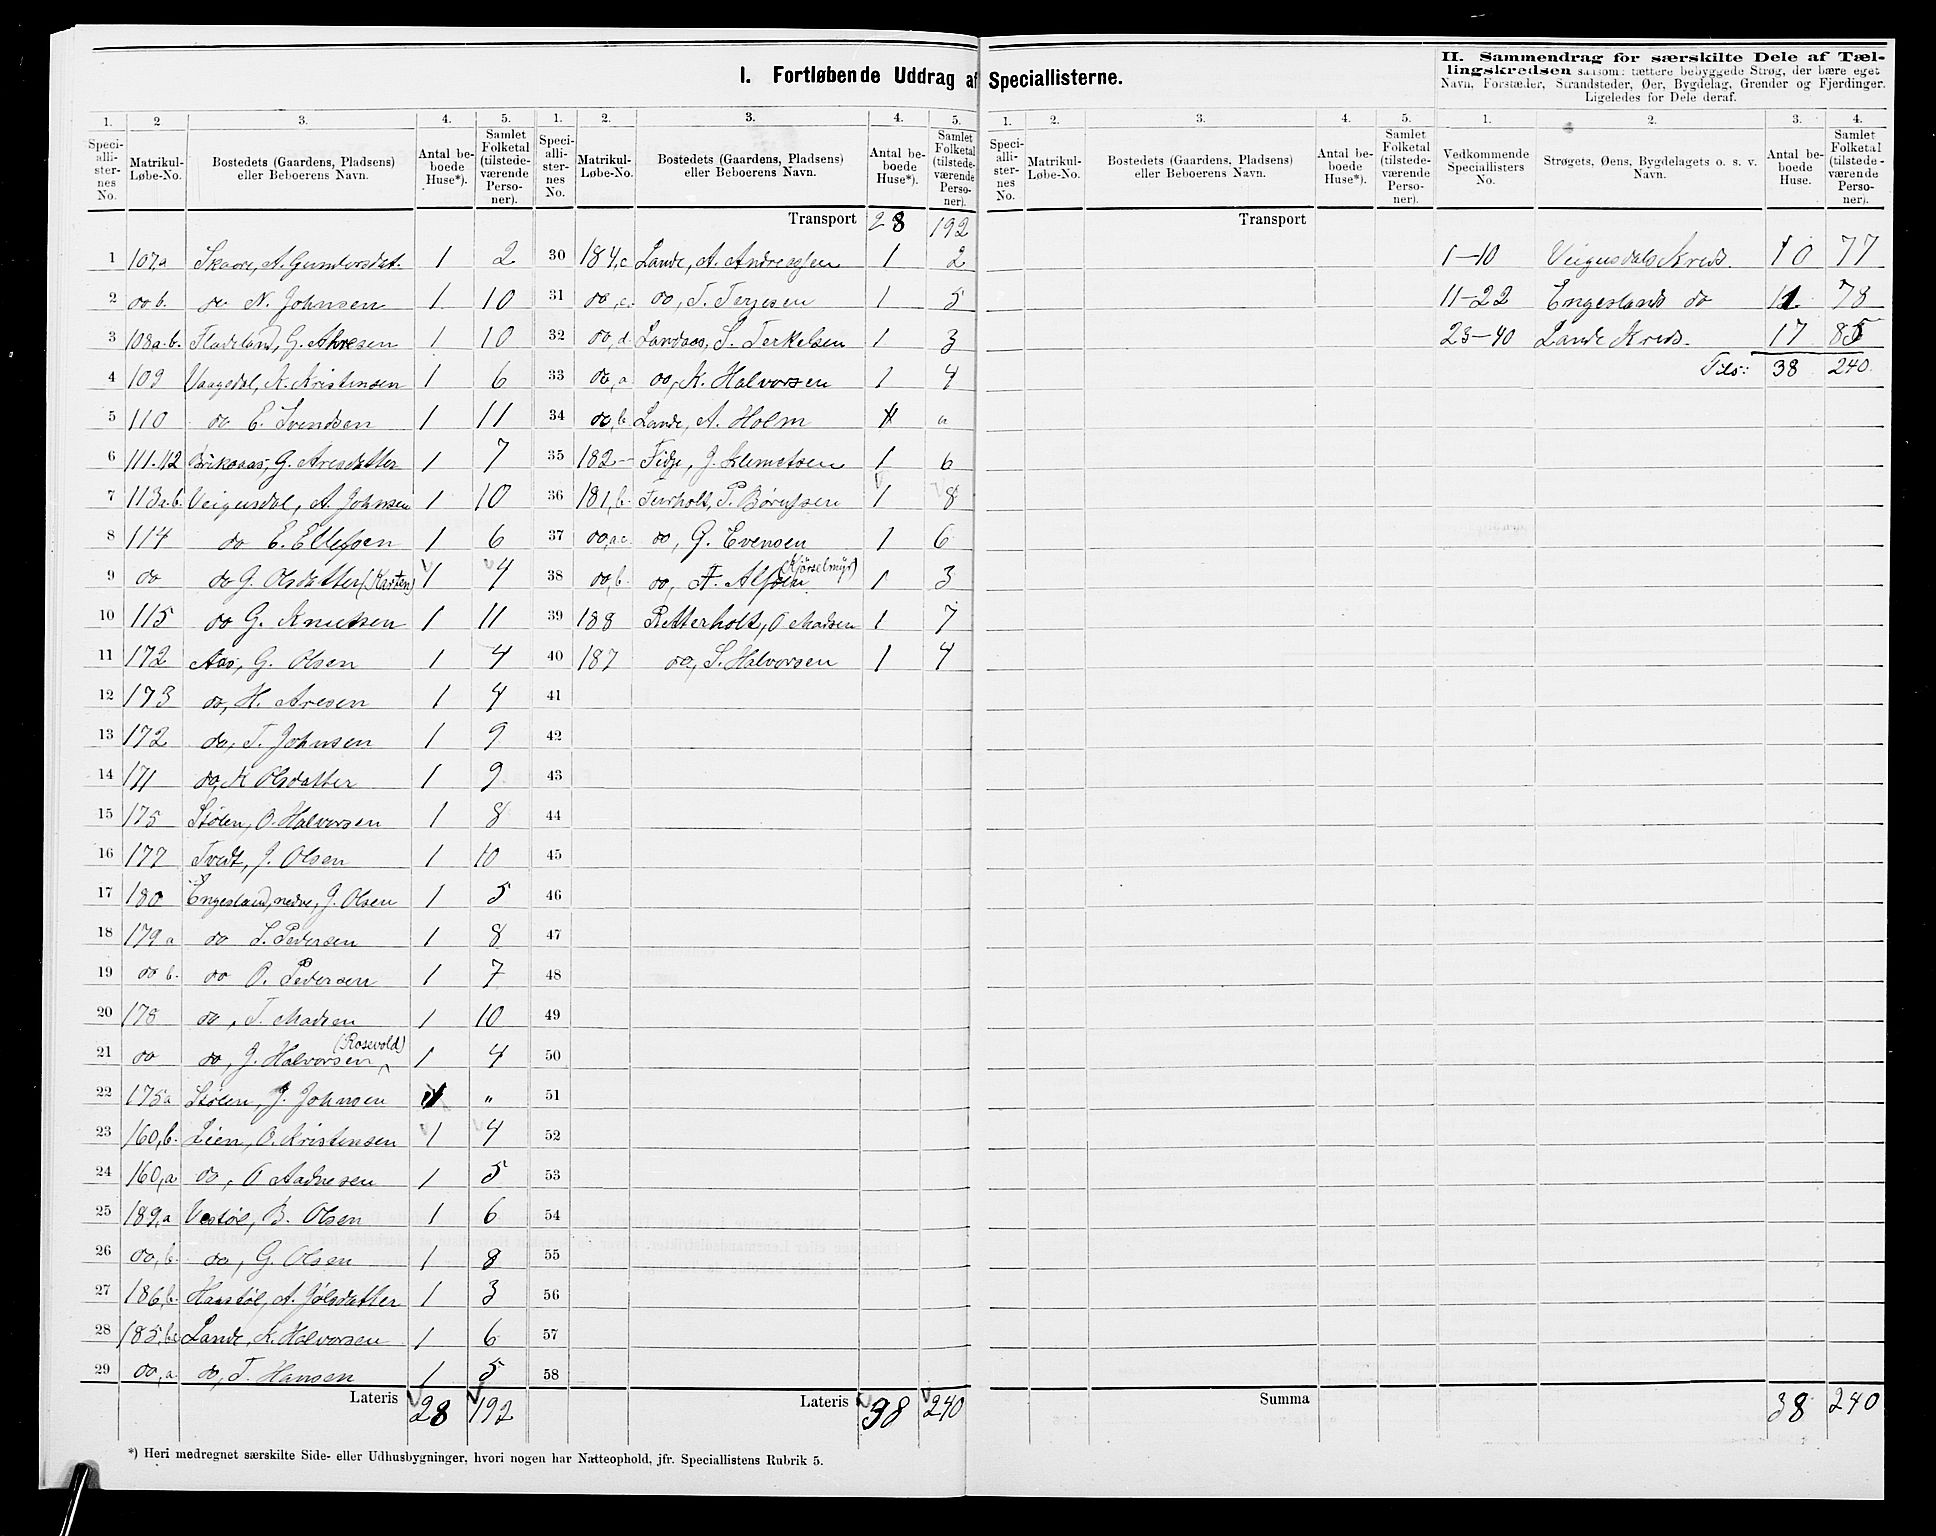 I. Fortløbende Uddrag af Speciallisterne.
II. Sammendrag for særskilte Dele af Tællingskredsen saasom: tættere bebyggede Strøg, der bære eget Navn, Forstæder, Strandsteder, Øer, Bygdelag, Grender og Fjerdinger. Ligeledes for Dele deraf.
1. 2 3. 4. 5. 1. 2. 3. 4. 5. 1. 2. 3. 4. 5. 1. 2. 3. 4.
Speciallisternes No. Matrikul-Løbe-No. Bostedets (Gaardens, Pladsens) eller Beboerens Navn. Antal beboede Huse*). Samlet Folketal (tilstedeværende Personer).
Speciallisternes No. Matrikul-Løbe-No. Bostedets (Gaardens, Pladsens) eller Beboerens Navn. Antal beboede Huse*). Samlet Folketal (tilstedeværende Personer).
Speciallisternes No. Matrikul-Løbe-No. Bostedets (Gaardens, Pladsens) eller Beboerens Navn. Antal beboede Huse*). Samlet Folketal (tilstedeværende Personer).
Vedkommende Speciallisters No. Strøgets, Øens, Bygdelagets o. s. v. Navn. Antal beboede Huse. Samlet Folketal (tilstedeværende Personer).
1 107,a Skaare, A. Gundersdat. 1 2
2 do b. do N. Johnsen 1 10
3 108a.b. Fladeland, G. Aresen 1 10
4 109 Vaagedal, K. Kristensen 1 6
5 110 do E. Svendsen 1 11
6 111.112 Birkaas, G. Aresdatter 1 7
7 113a.b. Veigusdal, A. Johnsen 1 10
8 114 do E. Ellefsen 1 6
9 do do G. Olsdatter (Karsten) 1 4
10 115 do G. Knutsen 1 11
11 172 Aas, G. Olsen 1 4
12 173 do, H. Aresen 1 4
13 172 do, T. Johnsen 1 9
14 171 do, K Olsdatter 1 9
15 175 Stølen, O. Halvorsen 1 8
16 177 Tvedt, J. Olsen 1 10
17 180 Engesland, nedre, J. Olsen 1 5
18 179 a do S. Pedersen 1 8
19 do b. do O. Pedersen 1 7
20 178 do, T. Madsen 1 10
21 do do, J. Halvorsen (Rosevold) 1 4
22 175a Stølen, J. Johnsen „
23 160,b. Lien, O. Kristensen 1 4
24 160,a do, O Aadnesen 1 5
25 189,a Vestøl, B. Olsen 1 6
26 do,b. do, G. Olsen 1 8
27 186,b. Haustøl, A. Jølsdatter 1 3
28 185,bc Lande, K. Halvorsen 1 6
29 do,a do, T. Hansen 1 5
Lateris 28 192
Transport 28 192
30 184,c Lande, A. Andreassen 1 2
31 do,c. do, T. Terjesen 1 5
32 do,d. Landaas, S. Terkelsen 1 3
33 do,a do, K. Halvorsen 1 4
34 do,b Lande, A. Holm
35 182 — Fidje, J. Klemetsen 1 6
36 181,b. Furholt, P. Børufsen 1 8
37 do,a.c. do, G. Evensen 1 6
38 do,b. do, F. Alfsen (Kjørselmyr) 1 3
39 188 Retterholt, O Madsen 1 7
40 187 do, S. Halvorsen 1 4
41
42
43
44
45
46
47
48
49
50
51
52
53
54
55
56
57
58
Lateris 38 240
Transport
Summa
1–10 Veigusdals Kreds. 10 77
11–22 Engeslands do 11 78
23–40 Lande Kreds. 17 85
Tils: 38 240.
38 240
*) Heri medregnet særskilte Side- eller Udhusbygninger, hvori nogen har Natteophold, jfr. Speciallistens Rubrik 5.